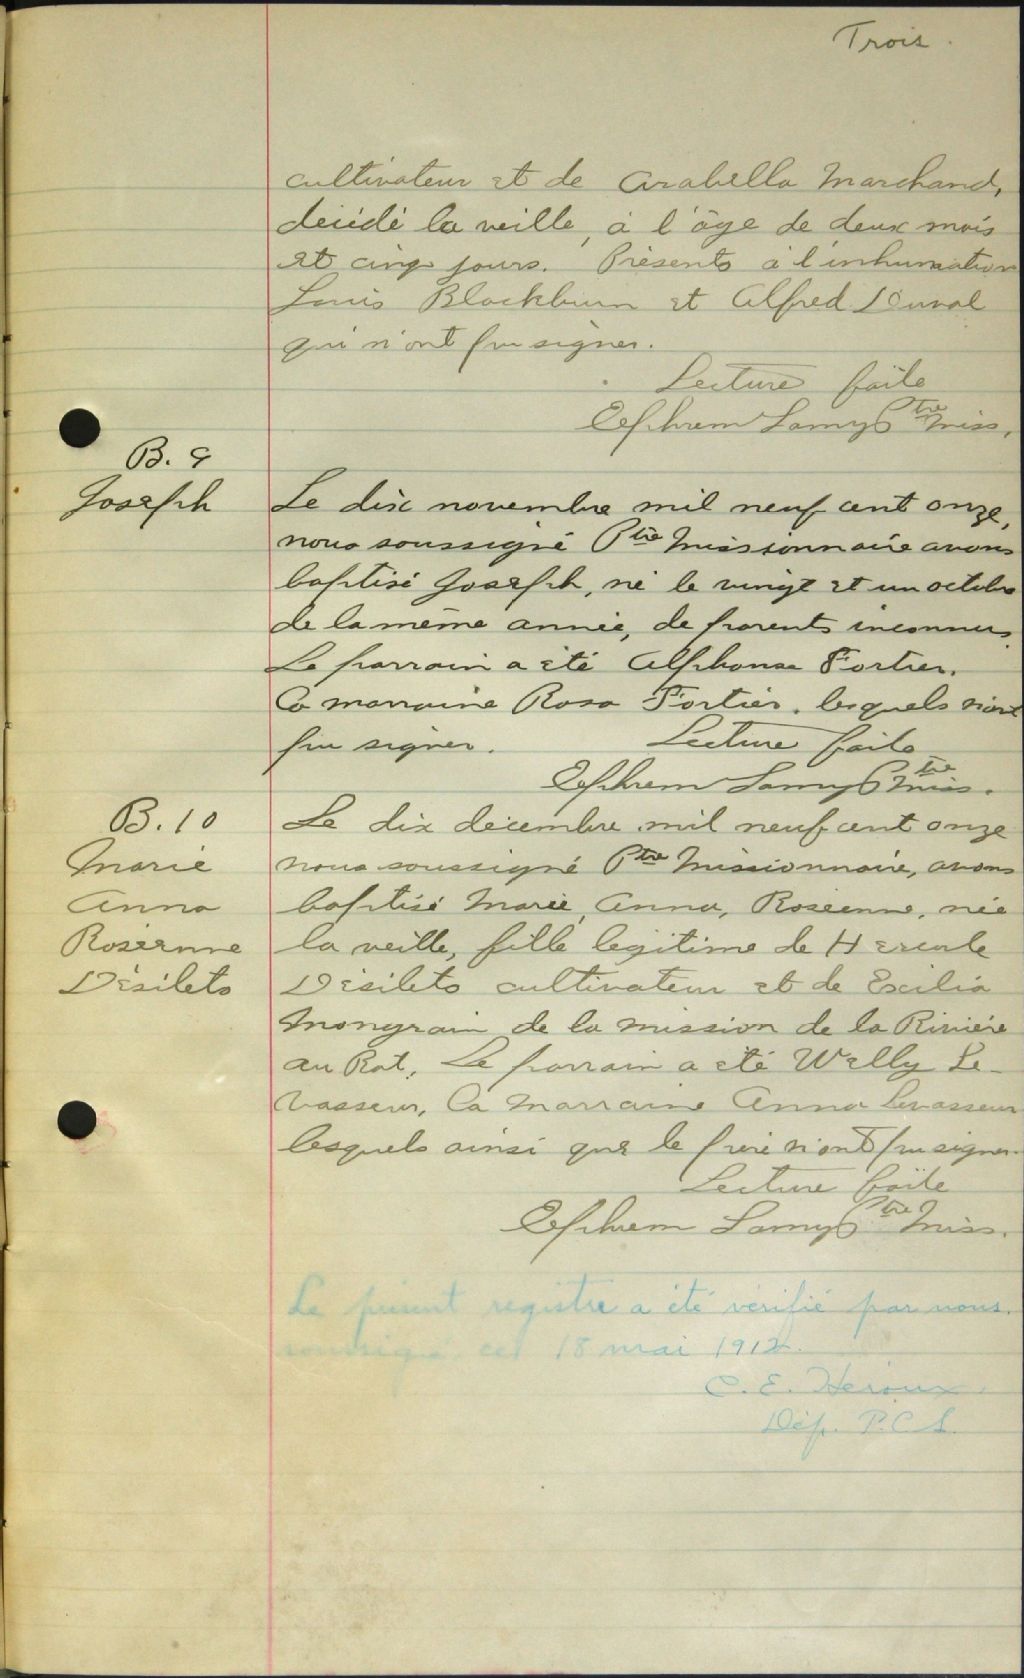 Trois
cultivateur et de Arabella Marchand,
décédé la veille, à l'âge de deux mois
et cinq jours. Présents à l'inhumation
Louis Blackburn et Alfred Duval
qui n'ont pu signer.
Lecture faite
Ephrem Lamy Ptre Miss.
B. 9
Joseph
Le dix novembre mil neuf cent onze,
nous soussigné Ptre Missionnaire avons
baptisé Joseph, né le vingt et un octobre
de la même année, de parents inconnus.
Le parrain a été Alphonse Fortier.
La marraine Rosa Fortier. lesquels n'ont
pu signer. Lecture faite
Ephrem Lamy Ptre Miss.
B. 10
Marie
Anna
Roséanne
Désilets
Le dix décembre mil neuf cent onze
nous soussigné Ptre Missionnaire, avons
baptisé Marie, Anna, Roseanne, née
la veille, fille légitime de Hercule
Désilets cultivateur et de Exilia
Mongrain de la mission de la Rivière
au Rat. Le parrain a été Welly Le-
vasseur, la marraine Anna Levasseur
lesquels ainsi que le père n'ont pu signer.
Lecture faite
Ephrem Lamy Ptre Miss.
Le présent registre a été vérifié par nous
soussigné ce 18 mai 1912.
C. E. Héroux
Dép. P.C.S.